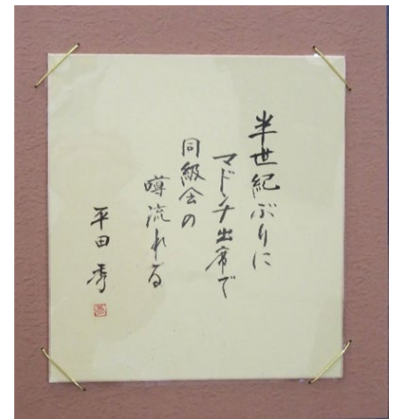 半世紀ぶりに
マドンナ出席で
同級会の
噂流れる
平田 秀